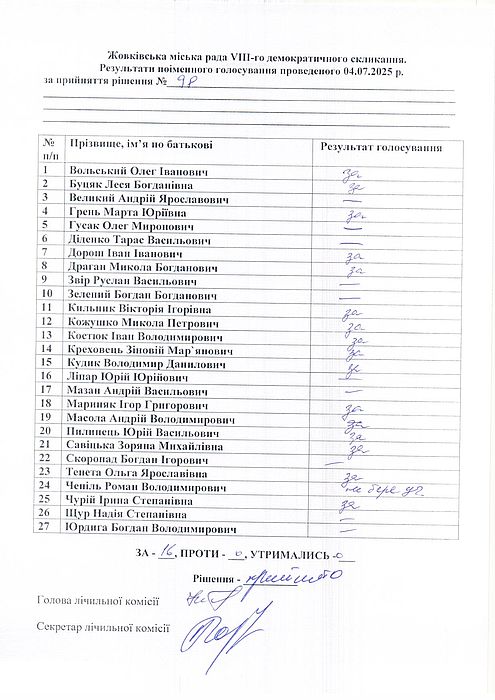 Жовківська міська рада VIII-го демократичного скликання.
Результати поіменного голосування проведеного 04.07.2025 р.
за прийняття рішення № 98
№ п/п Прізвище, ім’я по батькові Результат голосування
1 Вольський Олег Іванович за
2 Буцяк Леся Богданівна за
3 Великий Андрій Ярославович —
4 Грень Марта Юріївна за
5 Гусак Олег Миронович —
6 Діденко Тарас Васильович —
7 Дорош Іван Іванович за
8 Драган Микола Богданович за
9 Звір Руслан Васильович —
10 Зелений Богдан Богданович —
11 Кильник Вікторія Ігорівна за
12 Кожушко Микола Петрович за
13 Костюк Іван Володимирович за
14 Креховець Зіновій Мар`янович за
15 Кудик Володимир Данилович за
16 Ліпар Юрій Юрійович за
17 Мазан Андрій Васильович —
18 Марпияк Ігор Григорович за
19 Масола Андрій Володимирович за
20 Пилипець Юрій Васильович за
21 Савінька Зоряна Михайлівна за
22 Скоропад Богдан Ігорович —
23 Тенета Ольга Ярославівна за
24 Чепіль Роман Володимирович не бере уч.
25 Чурій Ірина Степанівна за
26 Щур Надія Степанівна —
27 Юрдига Богдан Володимирович —
ЗА - 16, ПРОТИ - 0, УТРИМАЛИСЬ - 0
Рішення - прийнято
Голова лічильної комісії
Секретар лічильної комісії